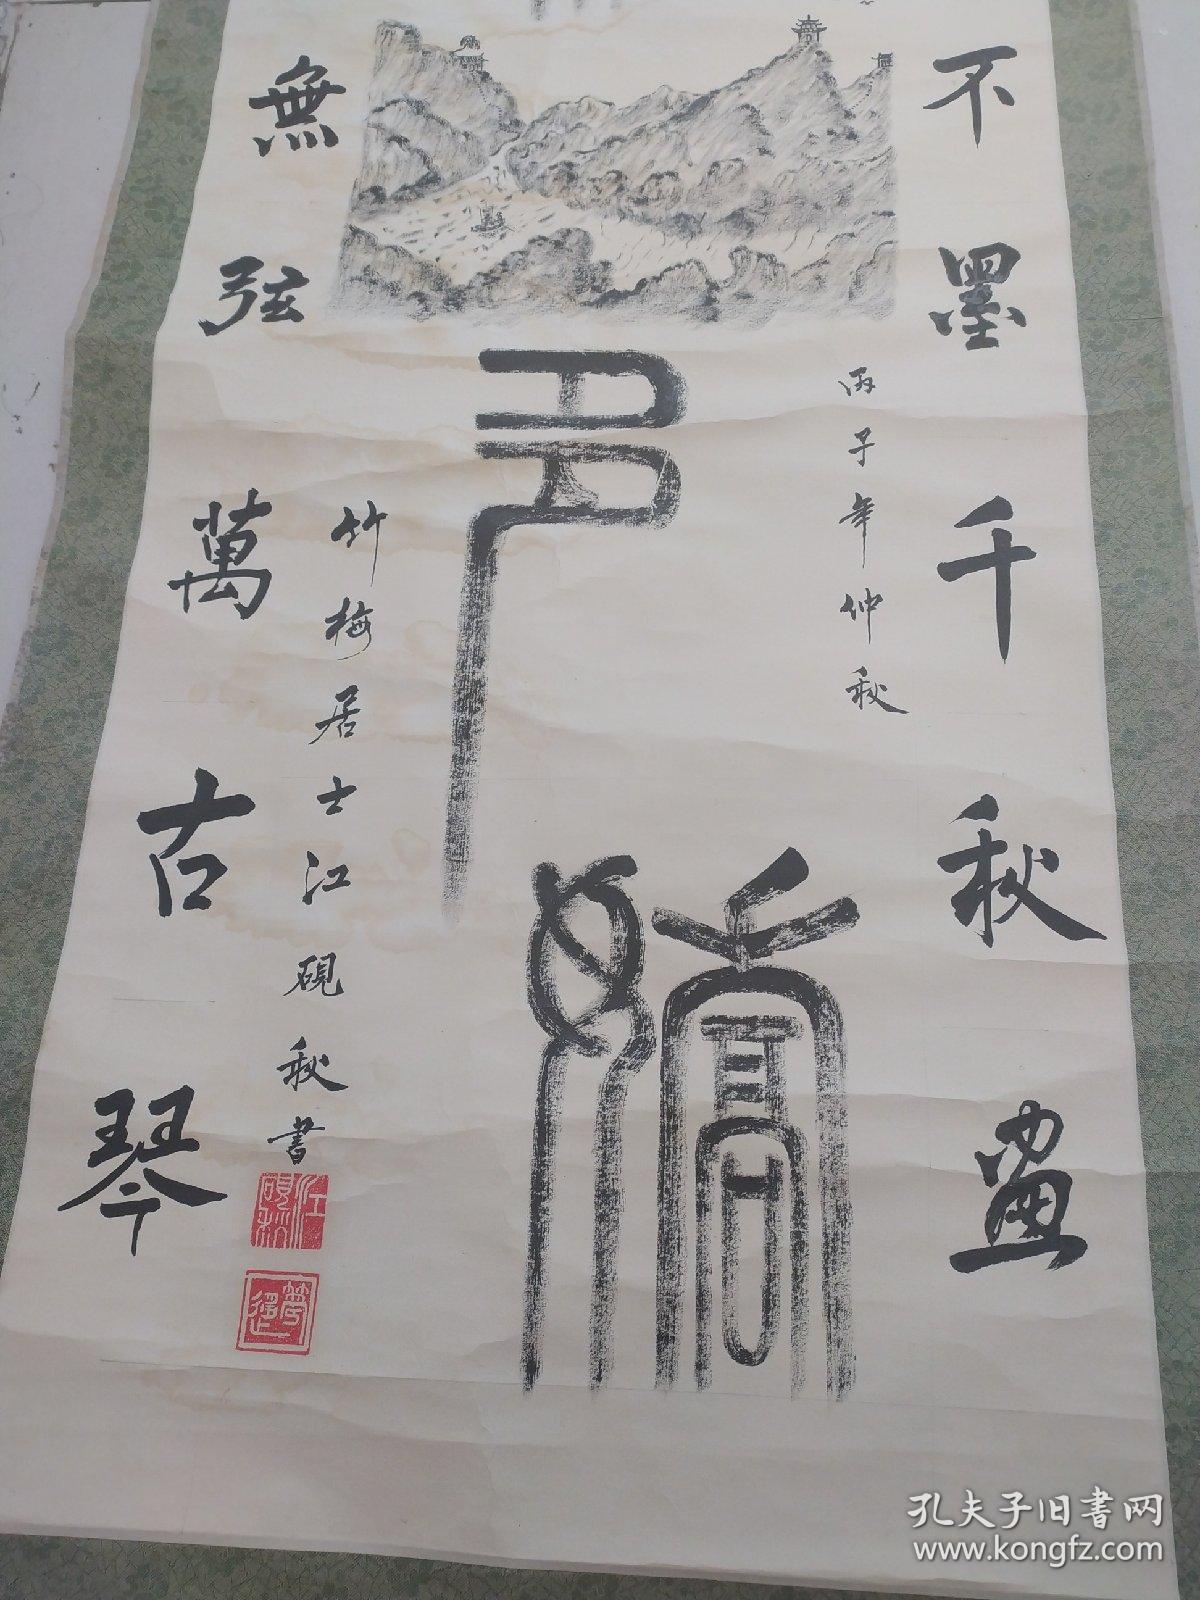 不墨千秋畫
丙子年仲秋
多嬌
竹梅居士江硯秋書
江硯秋
無弦萬古琴
孔夫子旧书网
www.kongfz.com